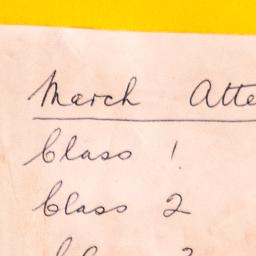 March Atte
Class 1
Class 2